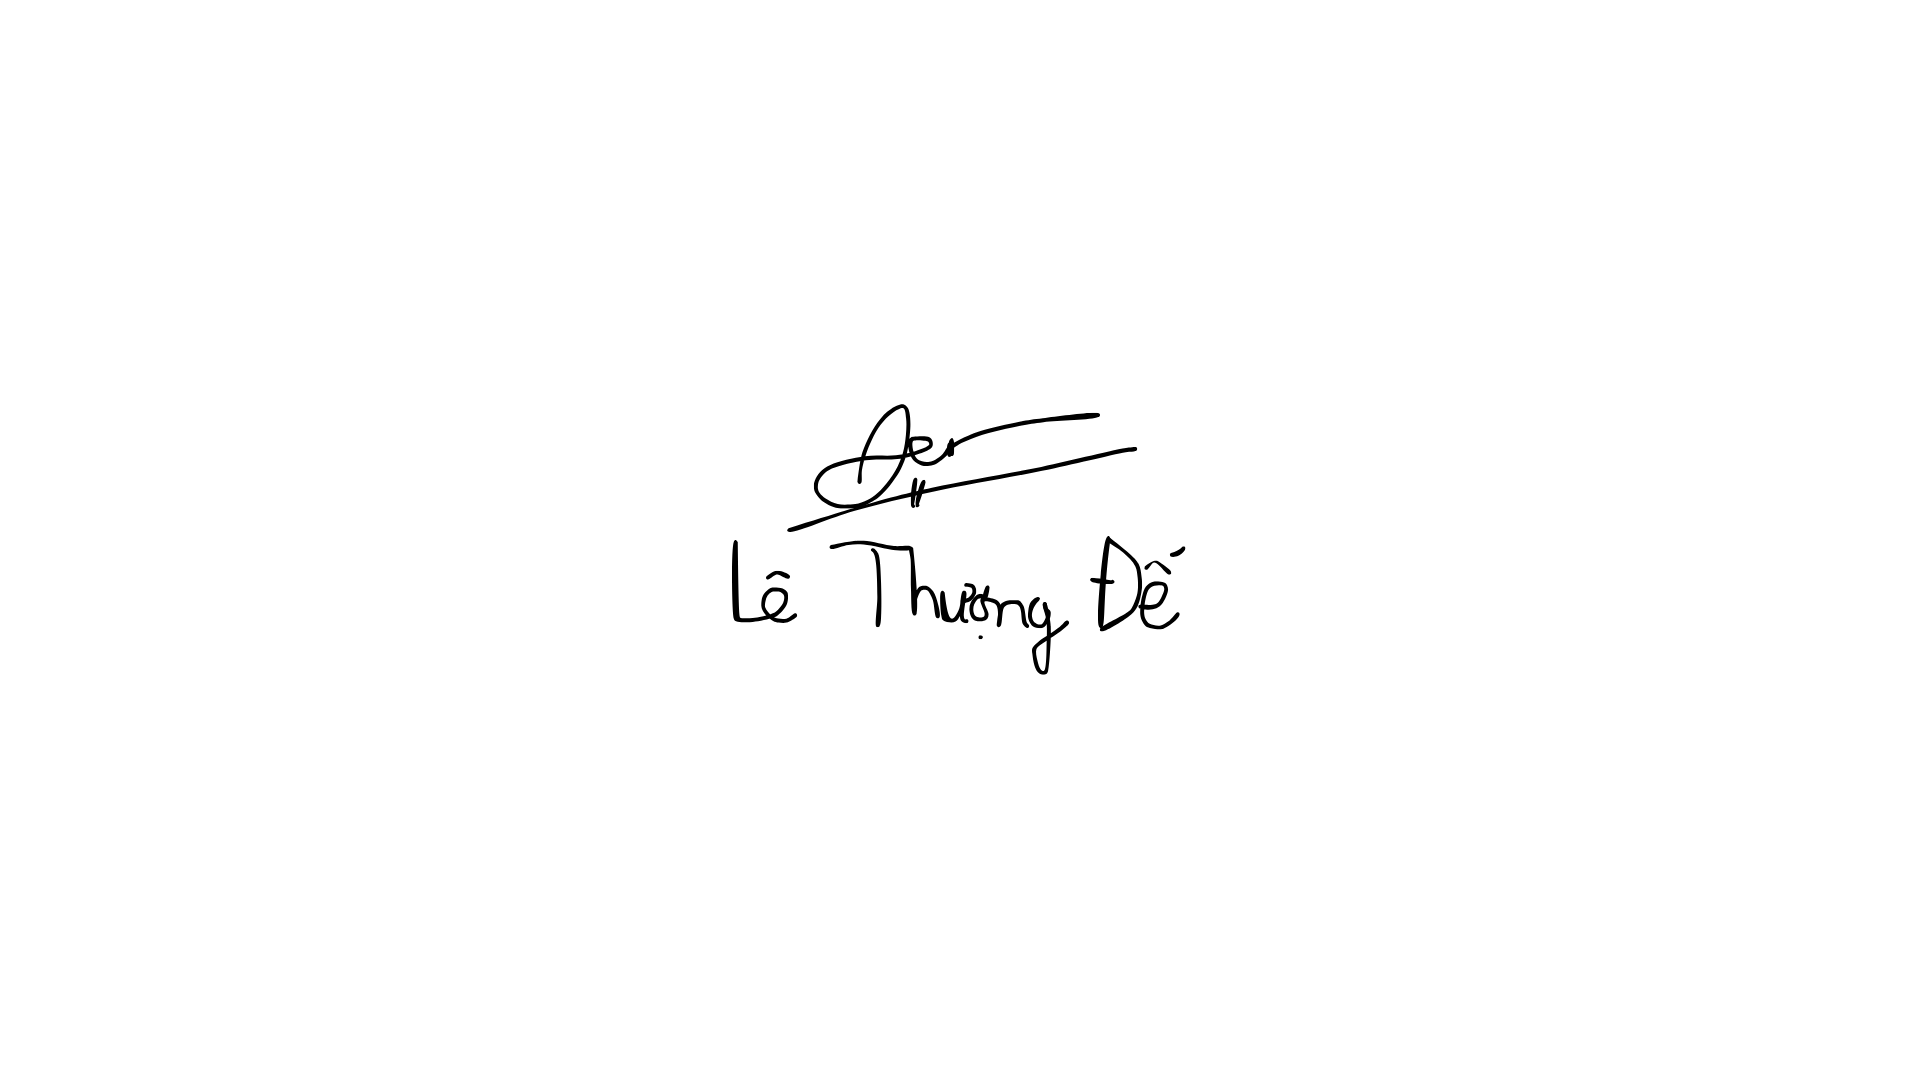 Lê Thượng Đế